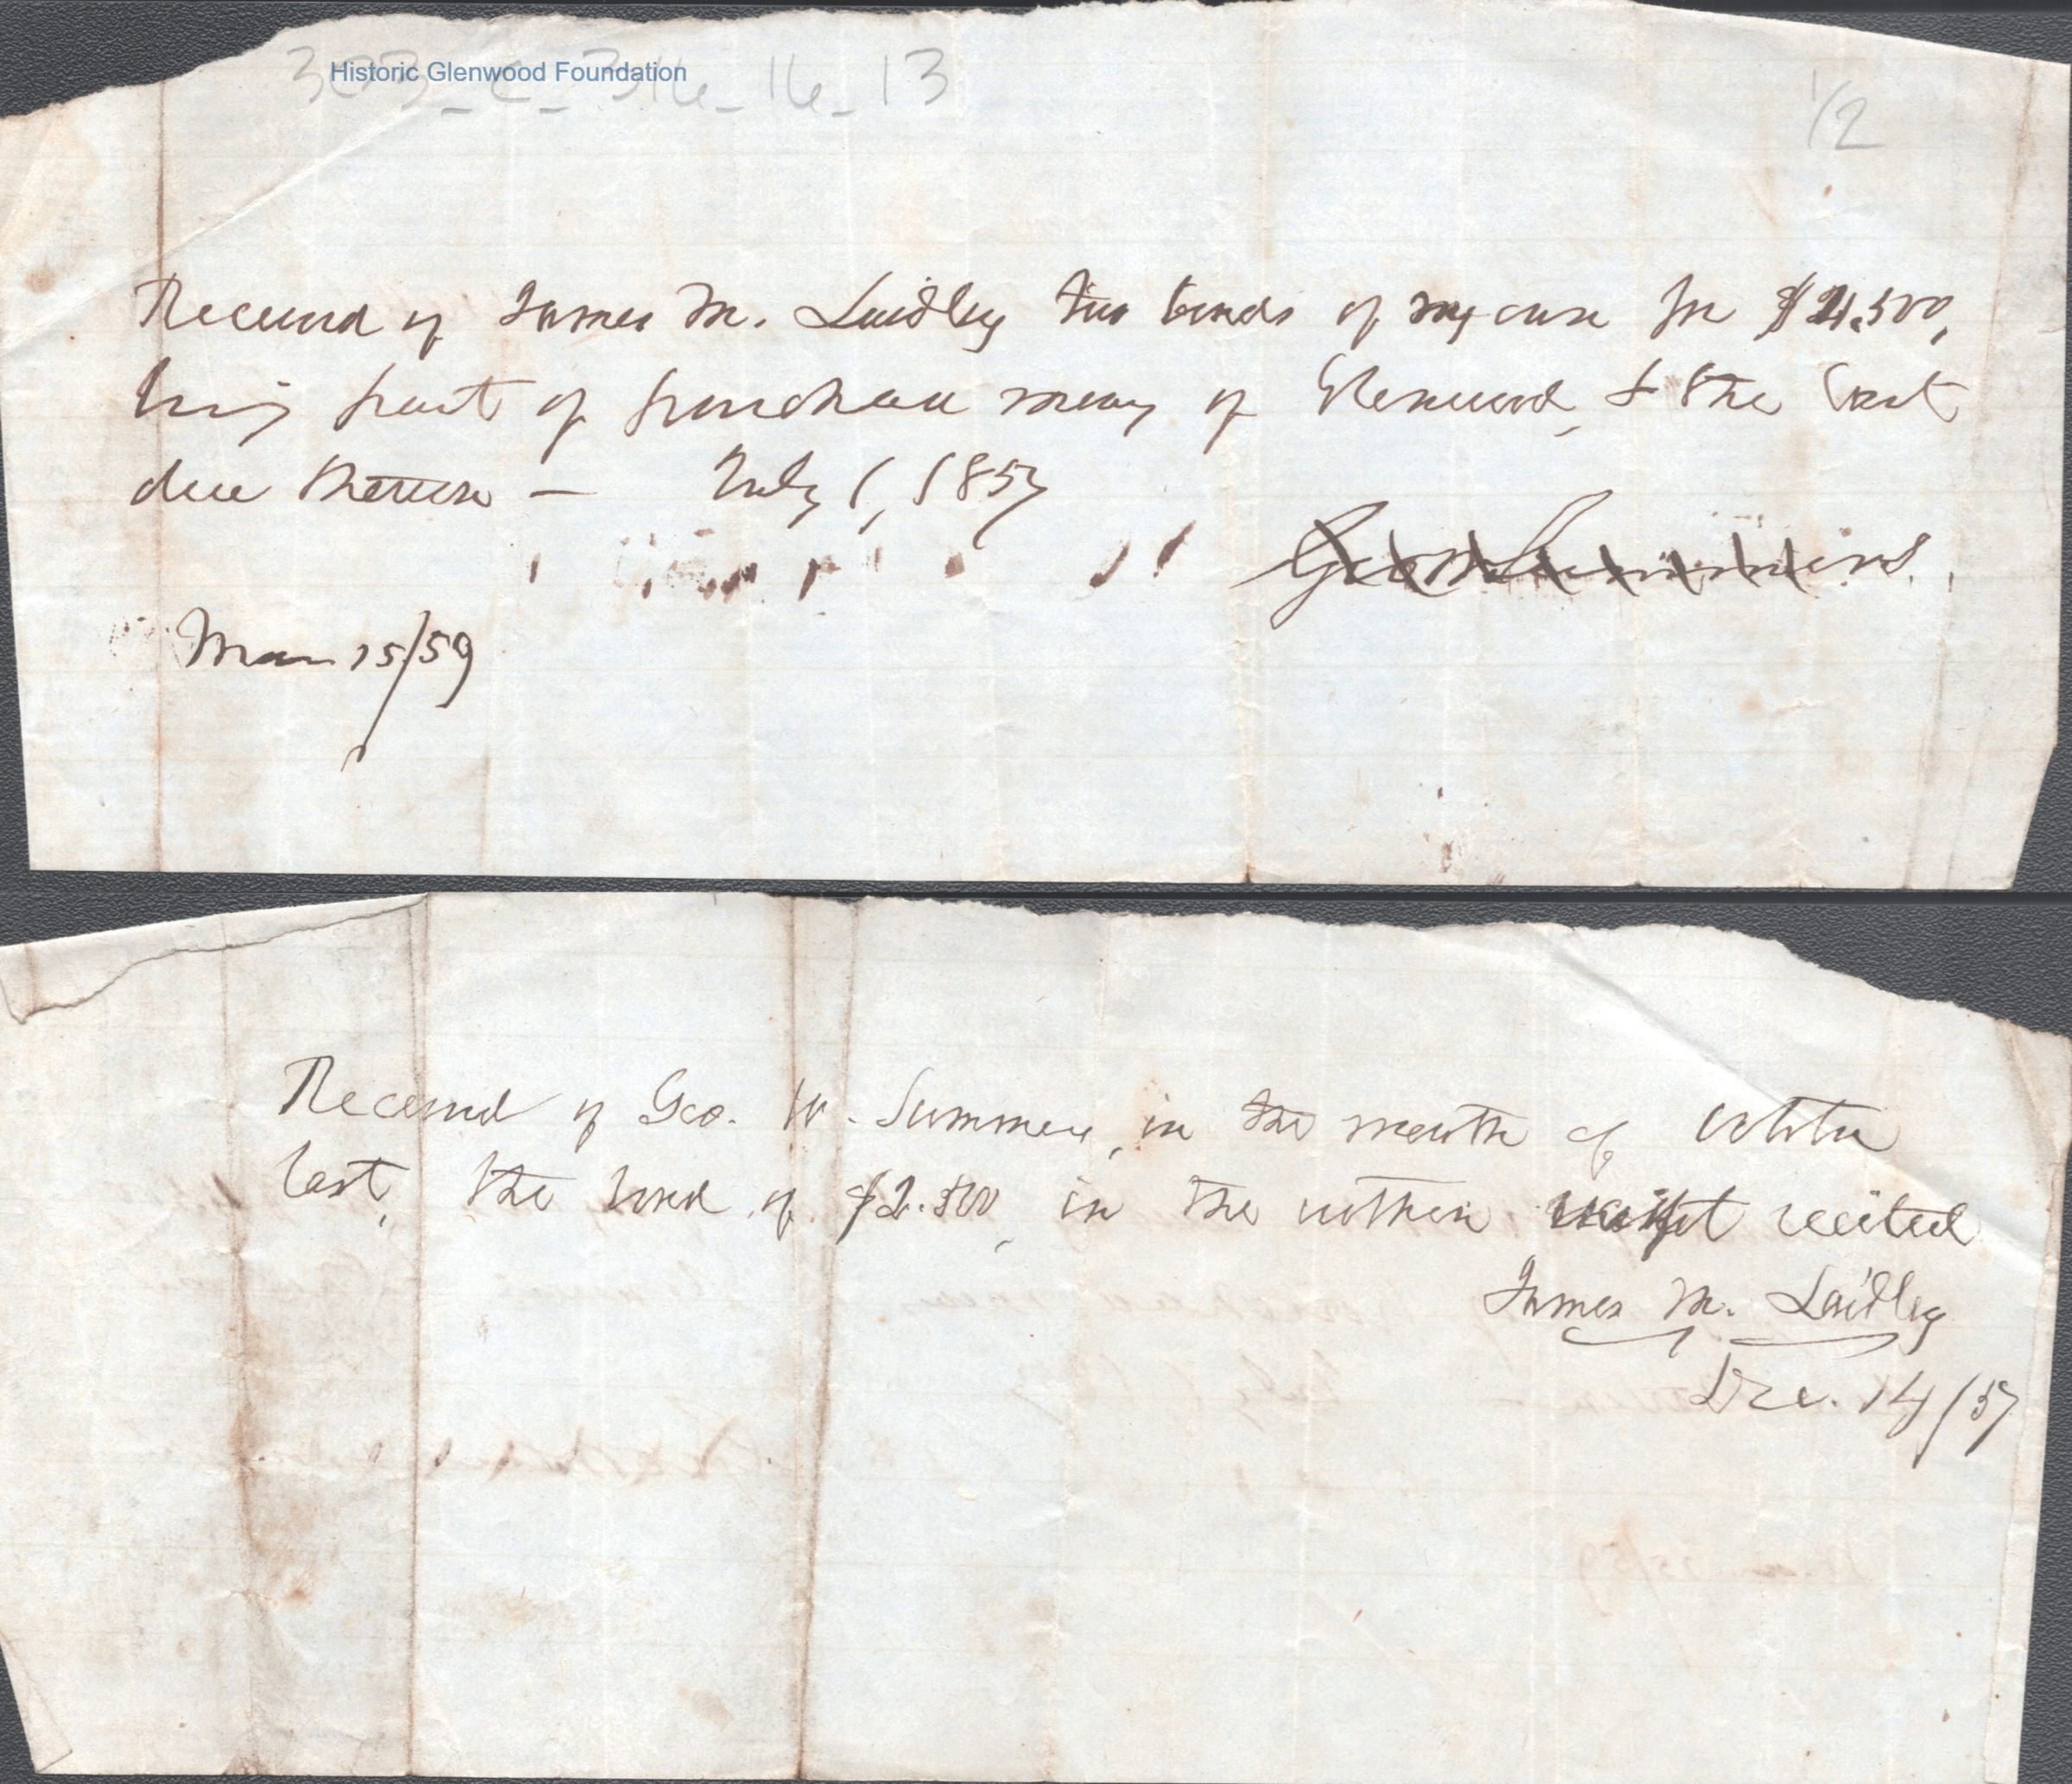 Historic Glenwood Foundation
303_C_314_16_13
1/2
Received of James M. Laidley two bonds of my own for $2,500,
being part of purchase money of Glenwood, & the last
due thereon — July 1, 1857
Geo. W. Summers.
Mar 15/59
Received of Geo. W. Summers, in the month of October
last, the bond of $2.500, in the within receipt recited
James M. Laidley
Dec. 14/57